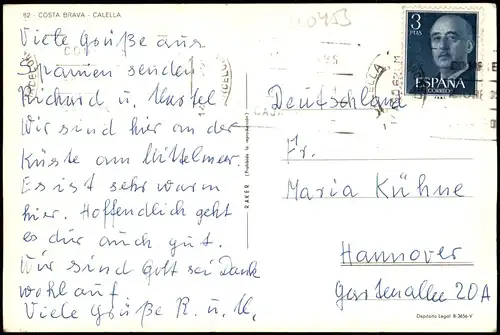 82 - COSTA BRAVA - CALELLA
Viele Grüße aus
Spanien senden
Richard u. Martel
Wir sind hier an der
Küste am Mittelmeer
Es ist sehr warm
hier. Hoffendlich geht
es dir auch gut.
Wir sind Gott sei Dank
wohl auf
Viele Grüße R. u. M.
RAKER (Prohibida la reproducción)
3
PTAS
ESPAÑA
CORREO
Deutschland
Fr.
Maria Kühne
Hannover
Gartenallee 20A
Depósito Legal B-3656-V